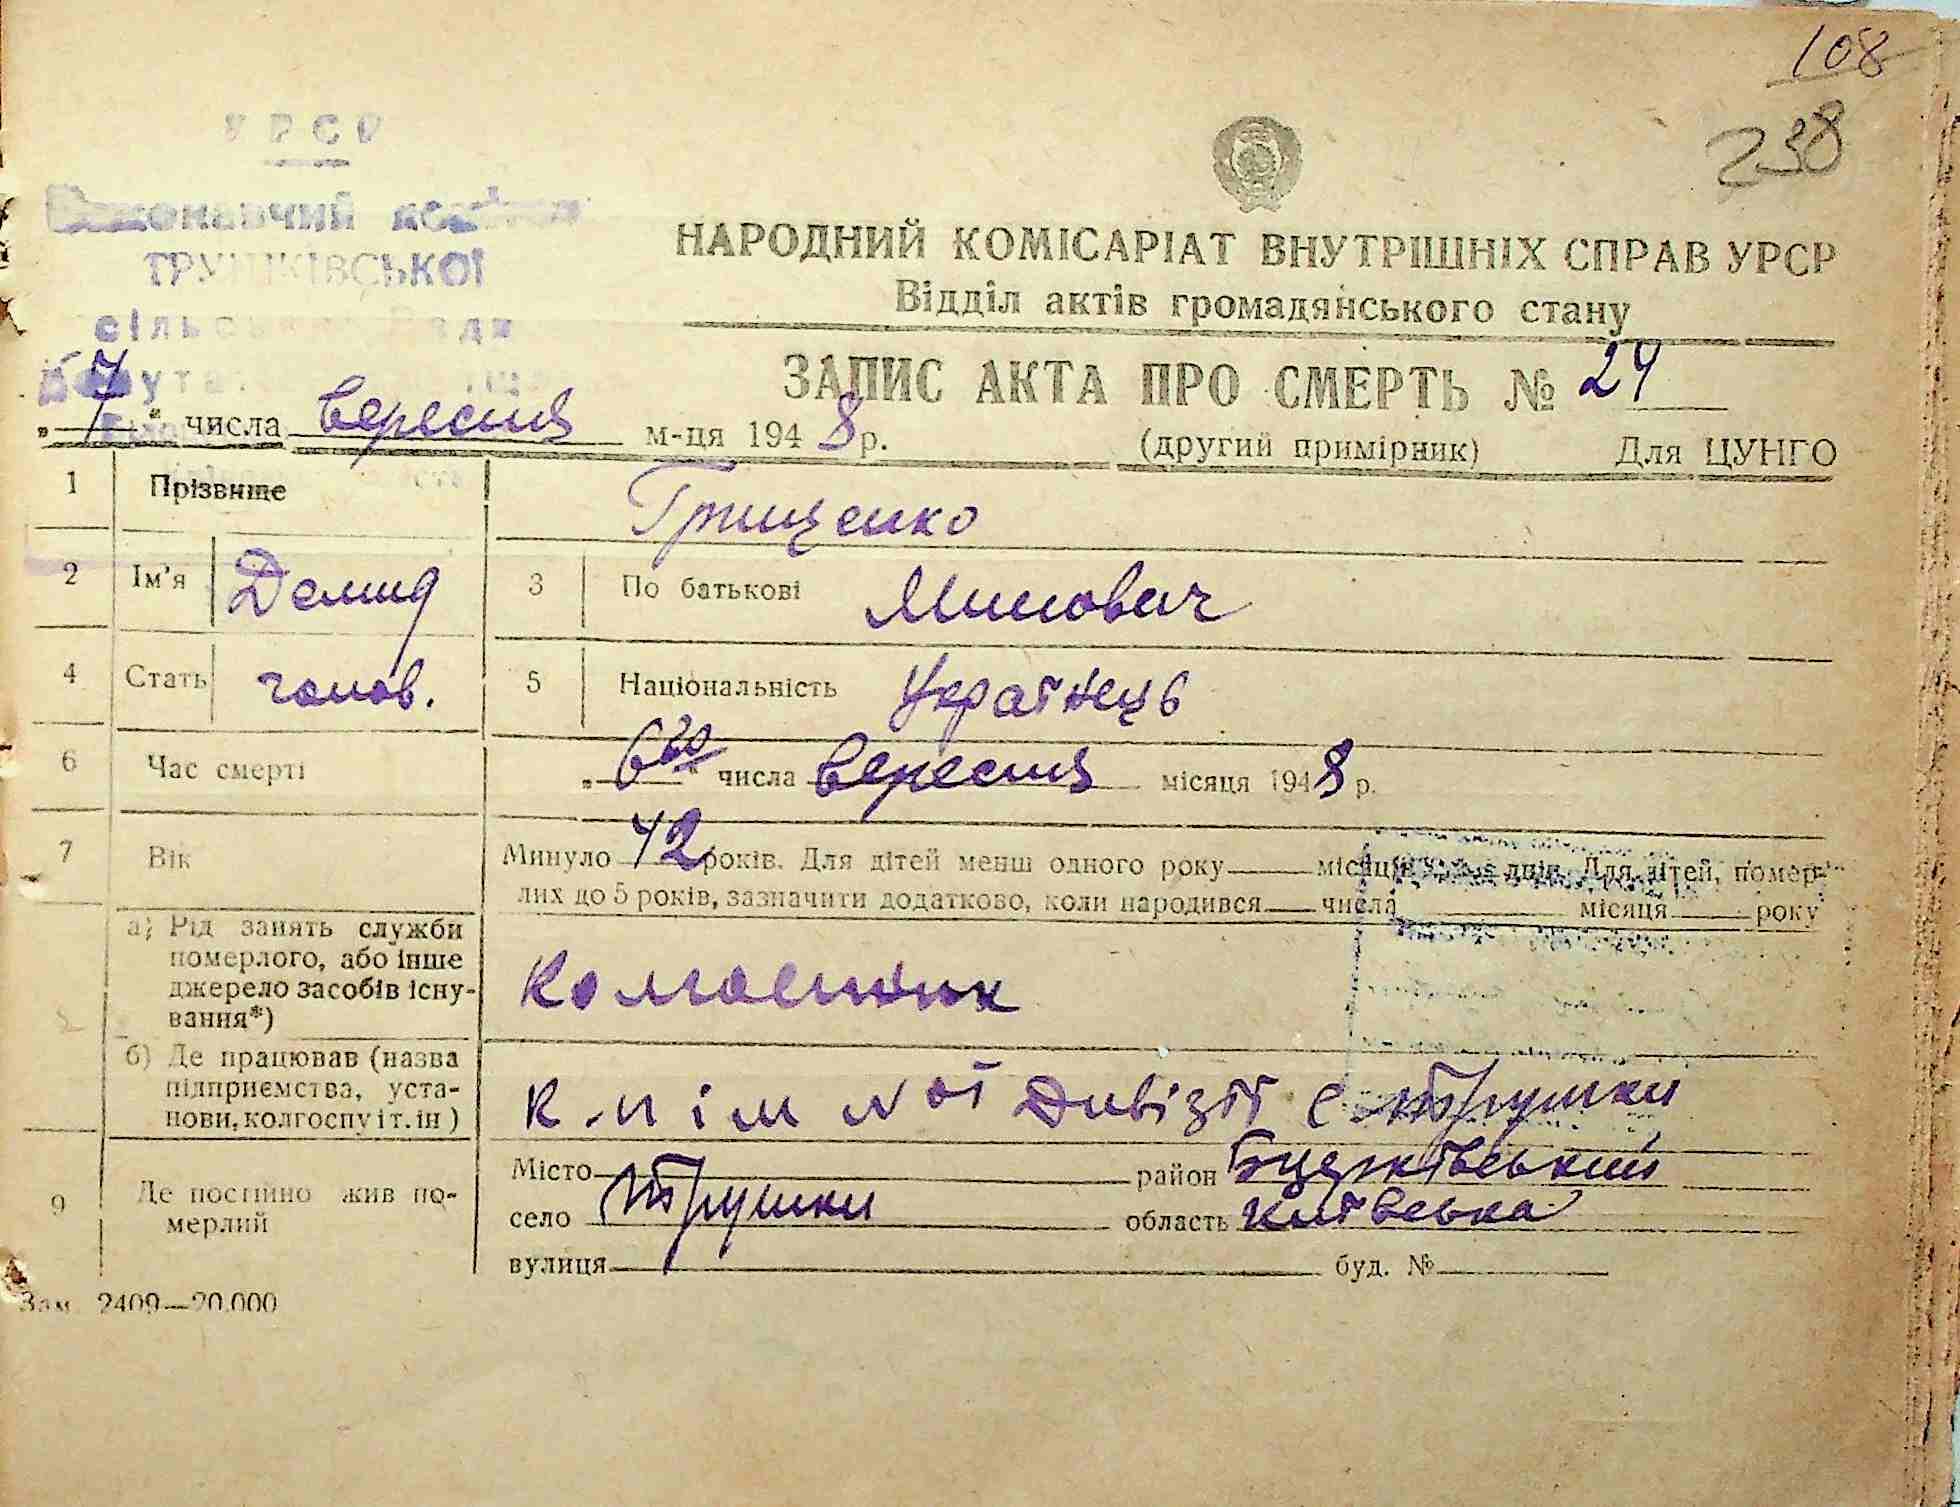 108
238
УРСР
Виконавчий комітет
ТРУШКІВСЬКОЇ
сільської Ради
НАРОДНИЙ КОМІСАРІАТ ВНУТРІШНІХ СПРАВ УРСР
Відділ актів громадянського стану
ЗАПИС АКТА ПРО СМЕРТЬ № 24
„ 7 " числа вересня м-ця 1948 р.
(другий примірник) Для ЦУНГО
1 Прізвище Грищенко
2 Ім'я Демид 3 По батькові Минович
4 Стать голов. 5 Національність Українець
6 Час смерті „ 6 " числа вересня місяця 1948 р.
7 Вік Минуло 42 років. Для дітей менш одного року місяців днів. Для дітей, помер-
лих до 5 років, зазначити додатково, коли народився числа місяця року
а) Рід занять служби
померлого, або інше
джерело засобів існу-
вання*)
Колгоспник
б) Де працював (назва
підприємства, уста-
нови, колгоспу і т. ін)
к-п ім ої Дивізії с Трушки
9 Де постійно жив по-
мерлий
Місто район Бцерківський
село Трушки область Київська
вулиця буд. №
Зам. 2409—20.000